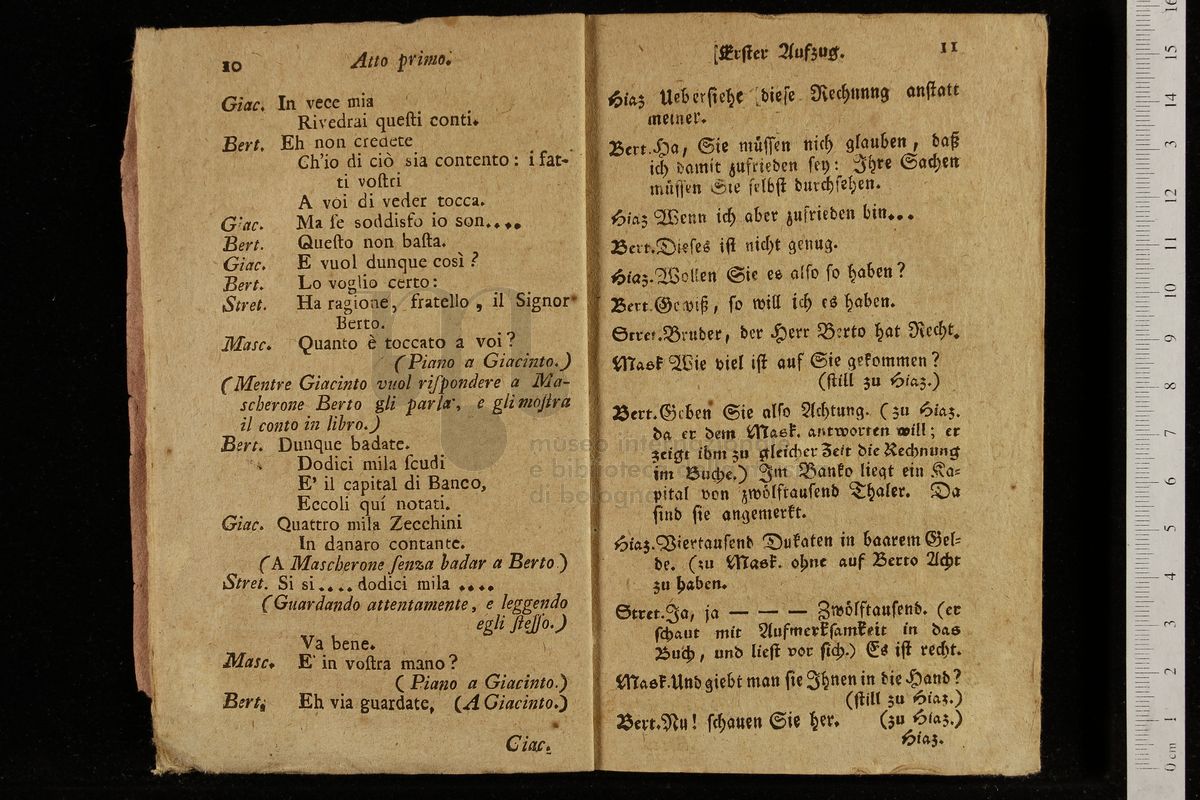 10
Atto primo.
Giac. In vece mia
Rivedrai queſti conti.
Bert. Eh non credete
Ch'io di ciò sia contento: i fat-
ti voſtri
A voi di veder tocca.
Giac. Ma ſe soddisfo io son....
Bert. Queſto non baſta.
Giac. E vuol dunque così?
Bert. Lo voglio certo:
Stret. Ha ragione, fratello, il Signor
Berto.
Masc. Quanto è toccato a voi?
(Piano a Giacinto.)
(Mentre Giacinto vuol riſpondere a Ma-
scherone Berto gli parla, e gli moſtra
il conto in libro.)
Bert. Dunque badate.
Dodici mila ſcudi
E' il capital di Banco,
Eccoli quí notati.
Giac. Quattro mila Zecchini
In danaro contante.
(A Mascherone ſenza badar a Berto.)
Stret. Si si.... dodici mila ....
(Guardando attentamente, e leggendo
egli ſteſſo.)
Va bene.
Masc. E' in voſtra mano?
(Piano a Giacinto.)
Bert. Eh via guardate, (A Giacinto.)
Ciac.
[Erſter Aufzug.
11
Hiaz Ueberſiehe [dieſe Rechnung anſtatt
meiner.
Bert. Ha, Sie müſſen nich glauben, daß
ich damit zufrieden ſey: Ihre Sachen
müſſen Sie ſelbſt durchſehen.
Hiaz Wenn ich aber zufrieden bin...
Bert. Dieſes iſt nicht genug.
Hiaz. Wollen Sie es alſo ſo haben?
Bert. Gewiß, ſo will ich es haben.
Stret. Bruder, der Herr Berto hat Recht.
Mask Wie viel iſt auf Sie gekommen?
(ſtill zu Hiaz.)
Bert. Geben Sie alſo Achtung. (zu Hiaz.
da er dem Mask. antworten will; er
zeigt ihm zu gleicher Zeit die Rechnung
im Buche.) Im Banko liegt ein Ka-
pital von zwölftauſend Thaler. Da
ſind ſie angemerkt.
Hiaz. Viertauſend Dukaten in baarem Gel-
de. (zu Mask. ohne auf Berto Acht
zu haben.
Stret. Ja, ja — — — Zwölftauſend. (er
ſchaut mit Aufmerkſamkeit in das
Buch, und lieſt vor ſich.) Es iſt recht.
Mask. Und giebt man ſie Ihnen in die Hand?
(ſtill zu Hiaz.)
Bert. Nu! ſchauen Sie her. (zu Hiaz.)
Hiaz.
museo internazionale
e biblioteca della musica
di bologna
0 cm 1 2 3 4 5 6 7 8 9 10 11 12 13 14 15 16